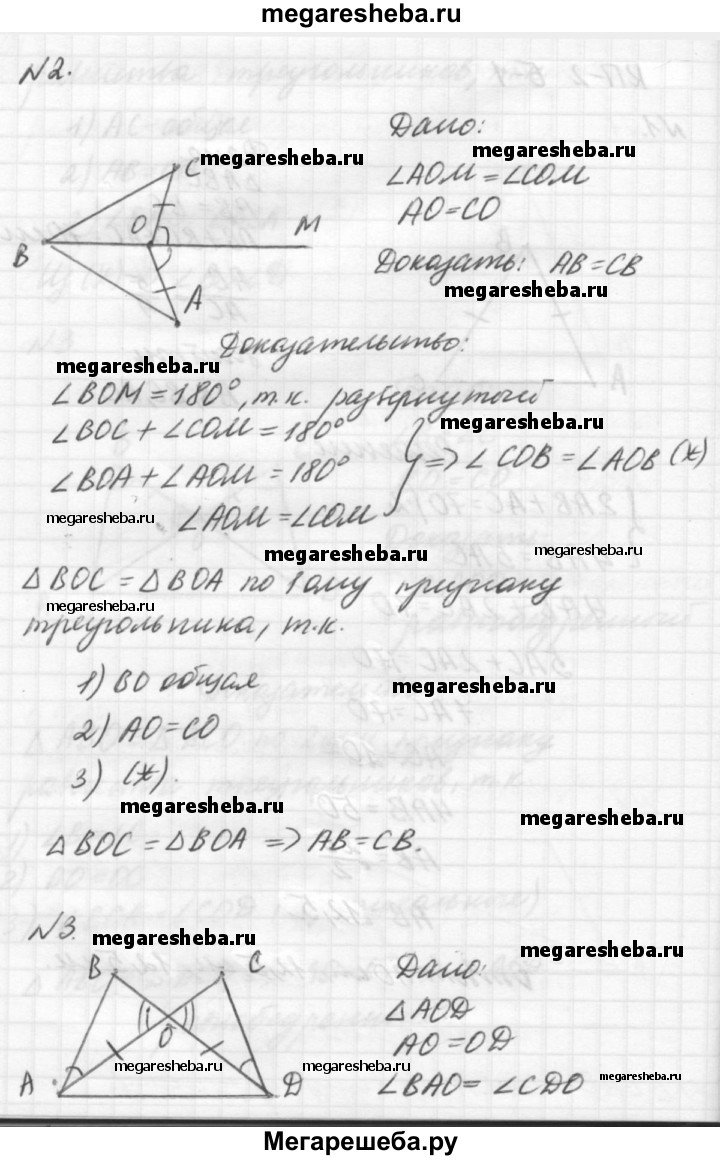 megaresheba.ru
N2.
Дано:
megaresheba.ru
megaresheba.ru
∠AOM = ∠COM
AO = CO
C
O
M
B
A
Доказать: AB = CB
megaresheba.ru
Доказательство:
megaresheba.ru
∠BOM = 180°, т.к. развернутый
megaresheba.ru
∠BOC + ∠COM = 180°
∠BOA + ∠AOM = 180°
=> ∠COB = ∠AOB (*)
megaresheba.ru
∠AOM = ∠COM
megaresheba.ru
megaresheba.ru
△BOC = △BOA по 1ому признаку
megaresheba.ru
треугольника, т.к.
1) BO общая
megaresheba.ru
2) AO = CO
3) (*).
megaresheba.ru
megaresheba.ru
△BOC = △BOA => AB = CB.
N3.
megaresheba.ru
megaresheba.ru
B
C
O
A
D
Дано:
△AOD
AO = OD
megaresheba.ru
megaresheba.ru
∠BAO = ∠CDO
megaresheba.ru
Мегарешеба.ру